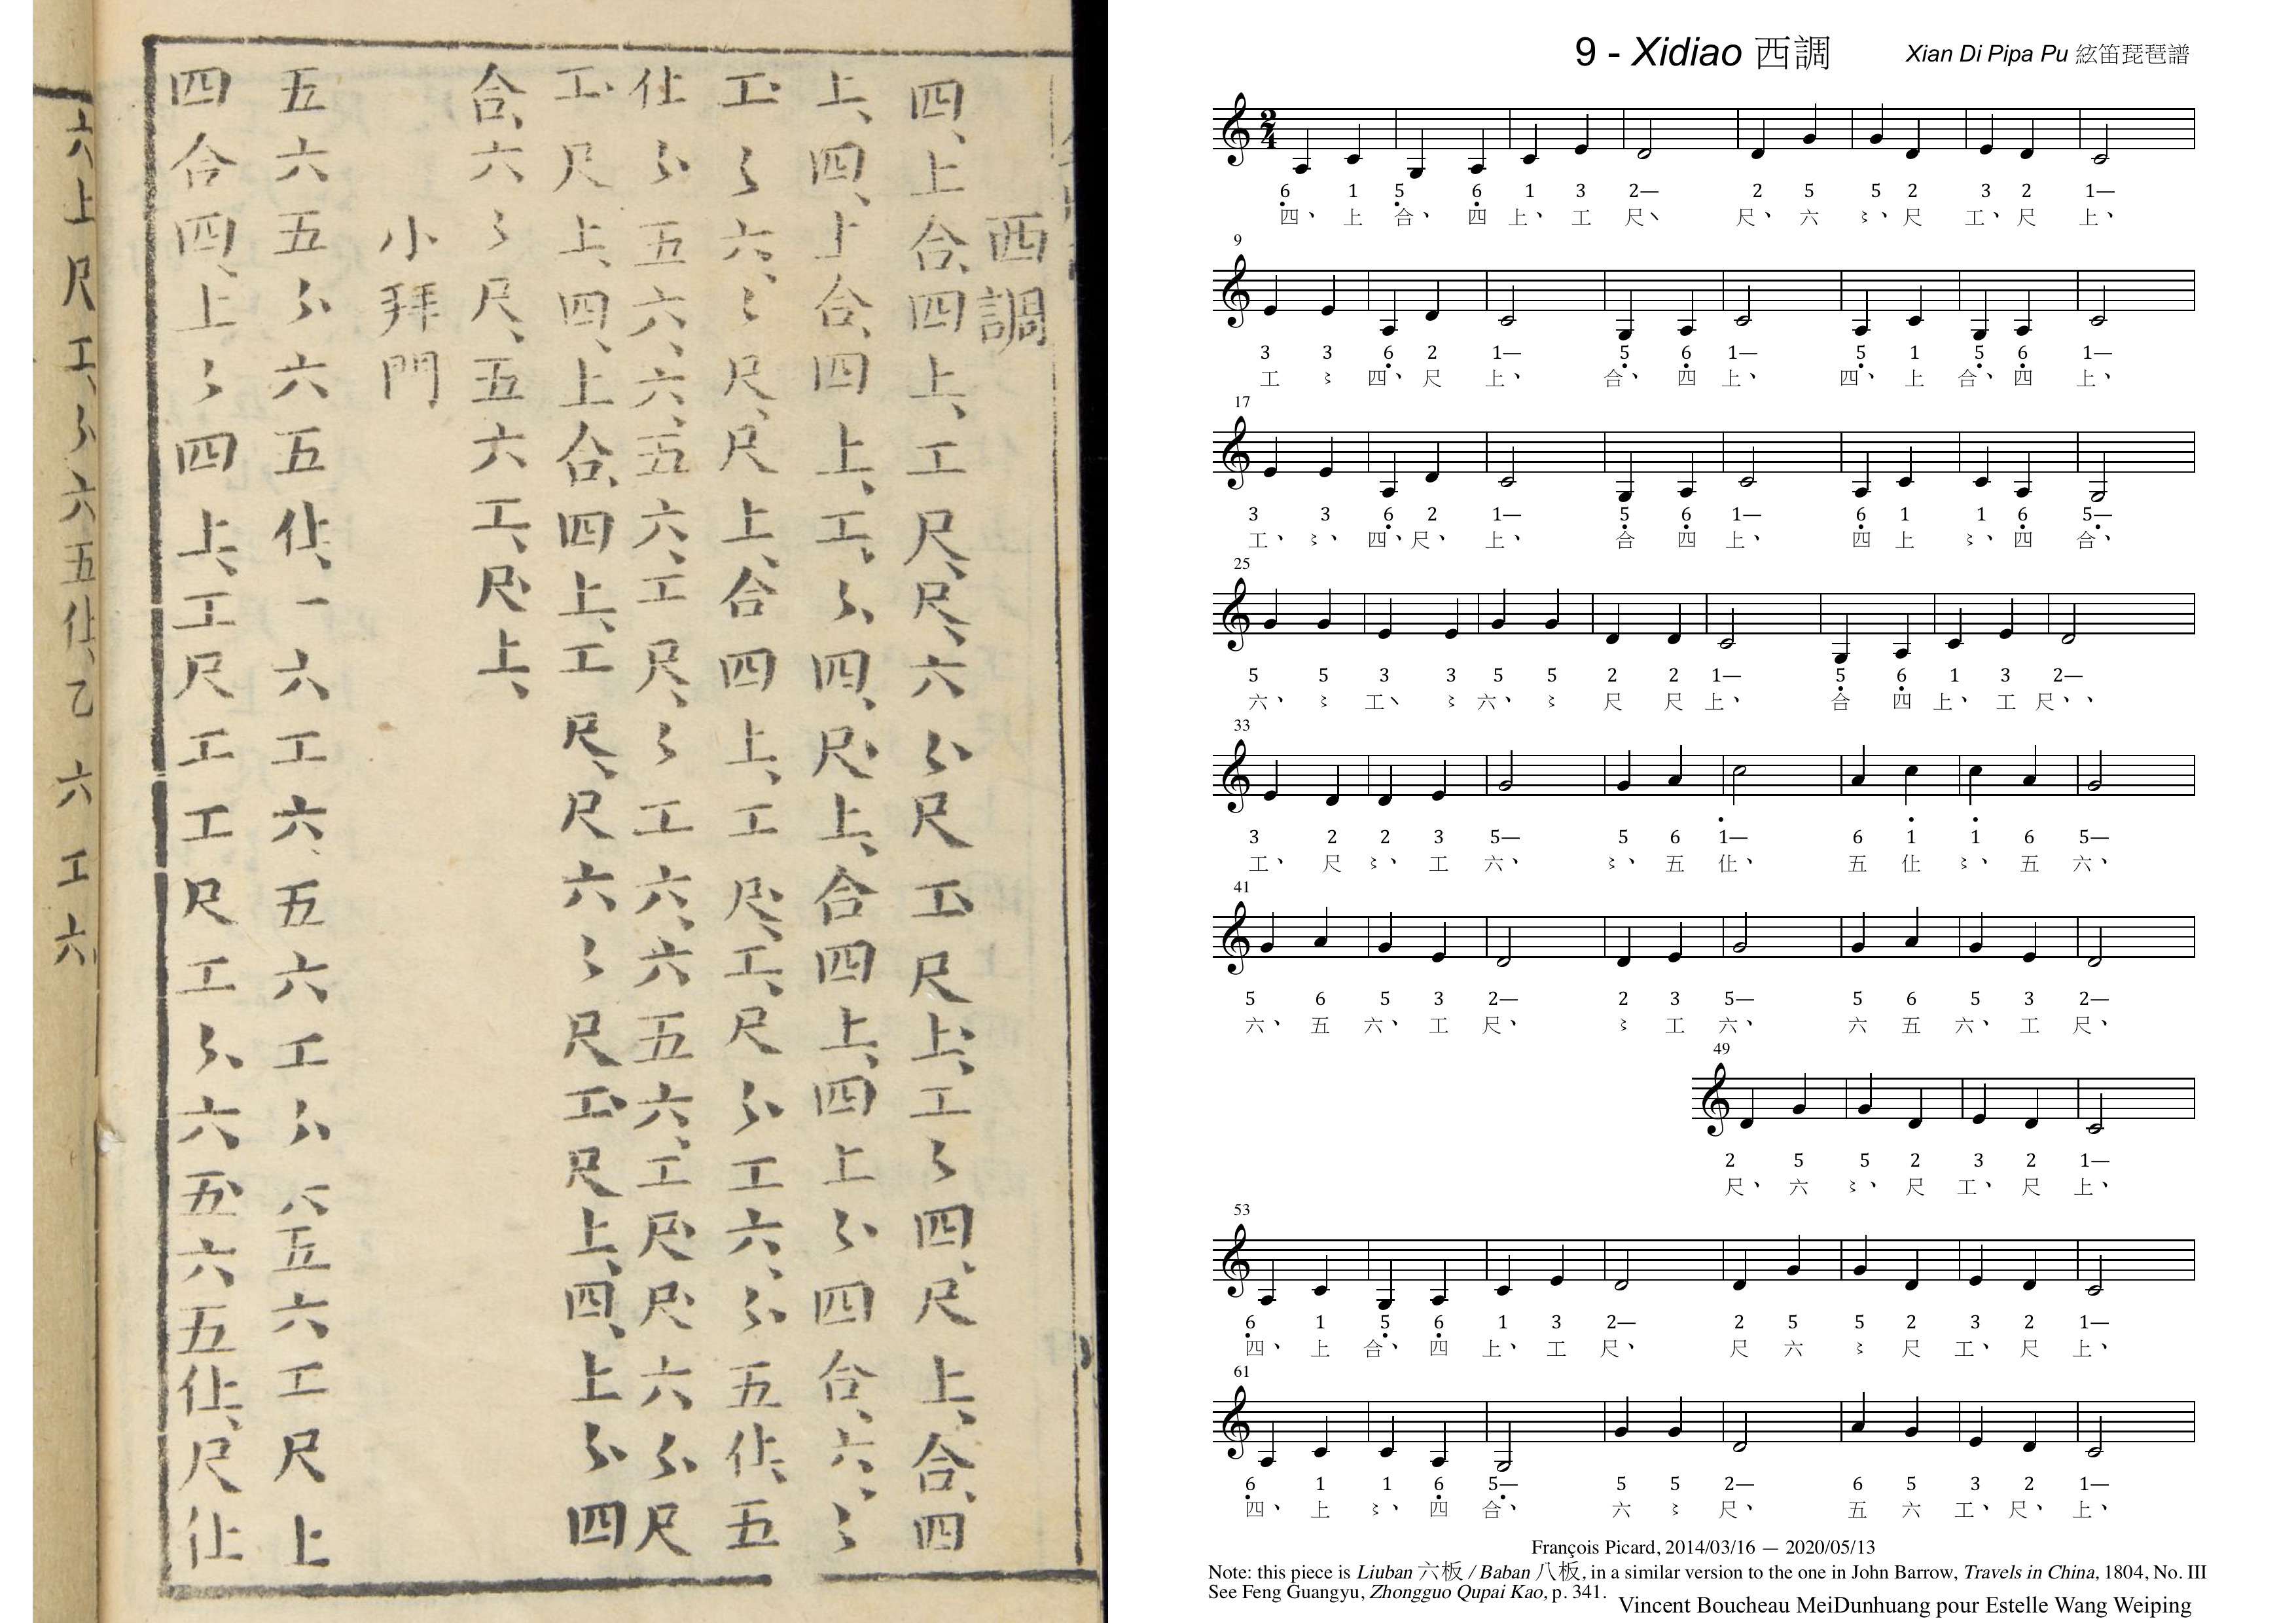 西調
四、上合、四上、工尺、尺、六〻、尺工、尺上、工〻四、尺上、合、四
上、四、上合、四上、工、〻、四、尺、上、合四上、四上〻、四合、六、〻
工、〻六、〻尺、尺上、合四上、工尺、、工、尺〻、工六、〻、五仩、五
仩〻、五六、六、五六、工尺、〻工六、六五六、工尺、尺、六〻、尺
工、尺上、四、上合、四上、工尺、尺六〻尺工、尺上、四、上〻、四
合、六〻尺、五六工、尺、上、
小拜門
五六五〻、六五仩、一六工六、五六工〻、六五六工尺上
四合四、上〻四上、工尺工工尺工〻、六五、六五仩、尺仩
六上尺工、〻六五仩、乙六工六
9 - Xidiao 西調
Xian Di Pipa Pu 絃笛琵琶譜
2/4
6 1 5 6 1 3 2— 2 5 5 2 3 2 1—
四、 上 合、 四 上、 工 尺、 尺、 六 〻、 尺 工、 尺 上、
9
3 3 6 2 1— 5 6 1— 5 1 5 6 1—
工 〻 四、 尺 上、 合、 四 上、 四、 上 合、 四 上、
17
3 3 6 2 1— 5 6 1— 6 1 1 6 5—
工、 〻、 四、 尺、 上、 合 四 上、 四 上 〻、 四 合、
25
5 5 3 3 5 5 2 2 1— 5 6 1 3 2—
六、 〻 工、 〻 六、 〻 尺 尺 上、 合 四 上、 工 尺、、
33
3 2 2 3 5— 5 6 1— 6 1 1 6 5—
工、 尺 〻、 工 六、 〻、 五 仩、 五 仩 〻、 五 六、
41
5 6 5 3 2— 2 3 5— 5 6 5 3 2—
六、 五 六、 工 尺、 〻 工 六、 六 五 六、 工 尺、
49
2 5 5 2 3 2 1—
尺、 六 〻、 尺 工、 尺 上、
53
6 1 5 6 1 3 2— 2 5 5 2 3 2 1—
四、 上 合、 四 上、 工 尺、 尺 六 〻 尺 工、 尺 上、
61
6 1 1 6 5— 5 5 2— 6 5 3 2 1—
四、 上 〻、 四 合、 六 〻 尺、 五 六 工、 尺、 上、
François Picard, 2014/03/16 — 2020/05/13
Note: this piece is Liuban 六板 / Baban 八板, in a similar version to the one in John Barrow, Travels in China, 1804, No. III
See Feng Guangyu, Zhongguo Qupai Kao, p. 341.
Vincent Boucheau MeiDunhuang pour Estelle Wang Weiping